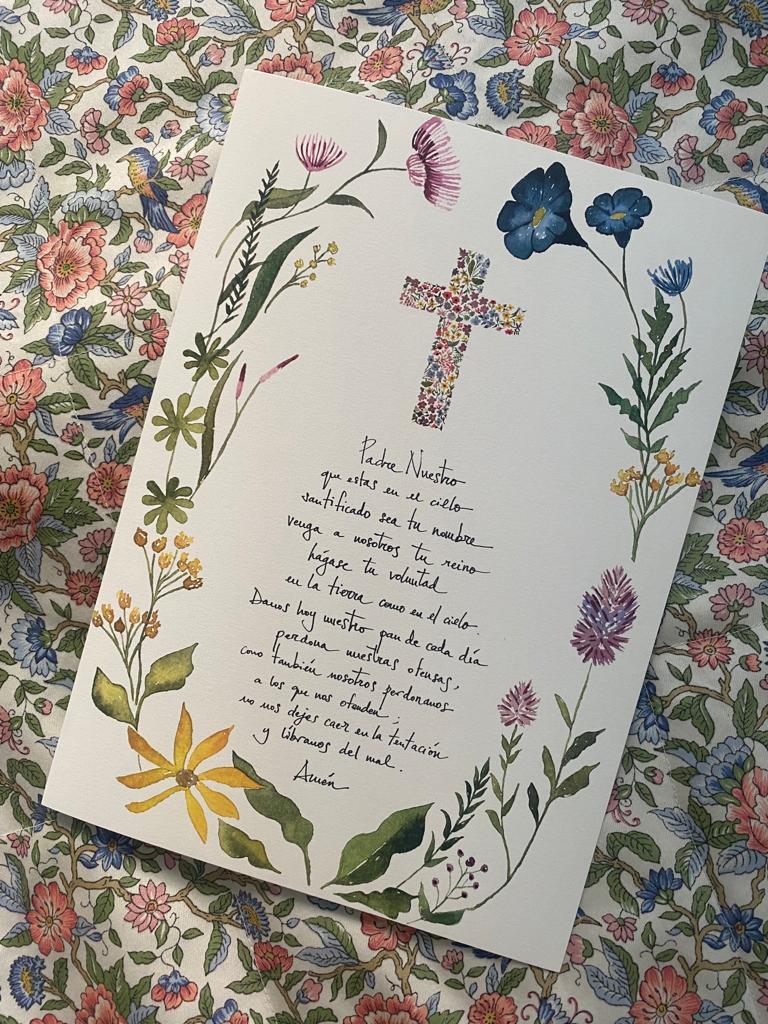 Padre Nuestro
que estas en el cielo
santificado sea tu nombre
venga a nosotros tu reino
hágase tu voluntad
en la tierra como en el cielo.
Danos hoy nuestro pan de cada día
perdona nuestras ofensas,
como también nosotros perdonamos
a los que nos ofenden;
no nos dejes caer en la tentación
y líbranos del mal.
Amén